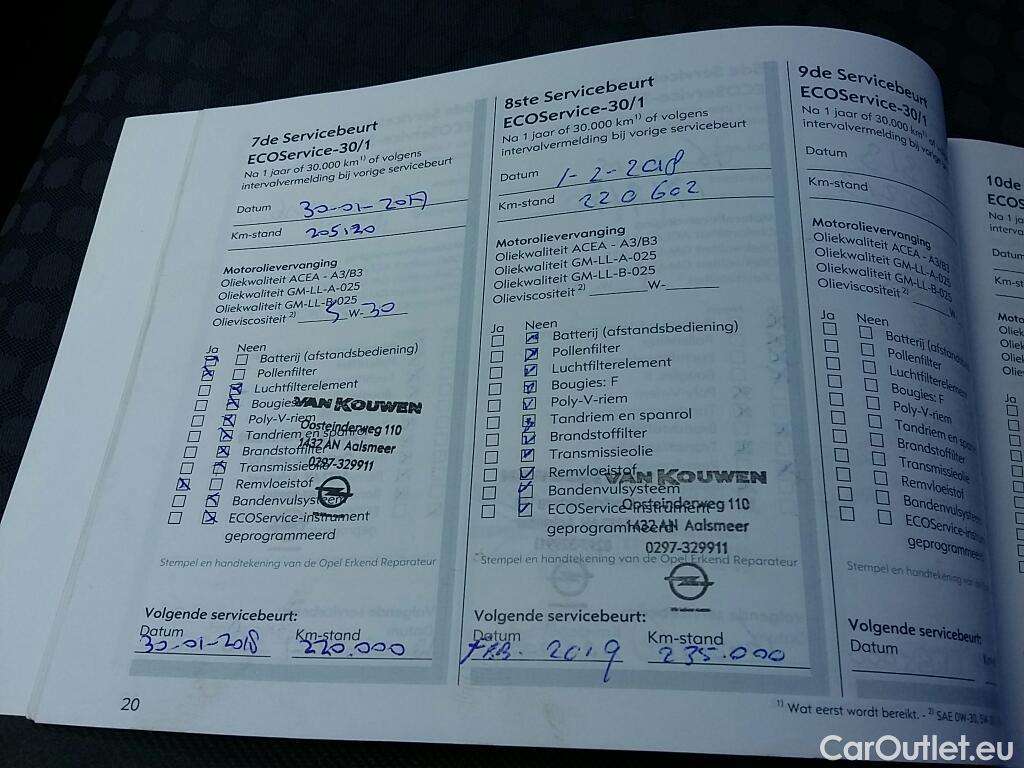 7de Servicebeurt
ECOService-30/1
Na 1 jaar of 30.000 km¹⁾ of volgens
intervalvermelding bij vorige servicebeurt
Datum 30-01-2017
Km-stand 205120
Motorolievervanging
Oliekwaliteit ACEA - A3/B3
Oliekwaliteit GM-LL-A-025
Oliekwaliteit GM-LL-B-025
Olieviscositeit ²⁾ 5 W-30
Ja Neen
Batterij (afstandsbediening)
Pollenfilter
Luchtfilterelement
Bougies
Poly-V-riem
Tandriem en spanrol
Brandstoffilter
Transmissieolie
Remvloeistof
Bandenvulsysteem
ECOService-instrument
geprogrammeerd
VAN KOUWEN
Oosteinderweg 110
1432 AN Aalsmeer
0297-329911
Stempel en handtekening van de Opel Erkend Reparateur
Volgende servicebeurt:
Datum Km-stand
30-01-2018 220.000
20
8ste Servicebeurt
ECOService-30/1
Na 1 jaar of 30.000 km¹⁾ of volgens
intervalvermelding bij vorige servicebeurt
Datum 1-2-2018
Km-stand 220602
Motorolievervanging
Oliekwaliteit ACEA - A3/B3
Oliekwaliteit GM-LL-A-025
Oliekwaliteit GM-LL-B-025
Olieviscositeit ²⁾ W-
Ja Neen
Batterij (afstandsbediening)
Pollenfilter
Luchtfilterelement
Bougies: F
Poly-V-riem
Tandriem en spanrol
Brandstoffilter
Transmissieolie
Remvloeistof
Bandenvulsysteem
ECOService-instrument
geprogrammeerd
VAN KOUWEN
Oosteinderweg 110
1432 AN Aalsmeer
0297-329911
Stempel en handtekening van de Opel Erkend Reparateur
Volgende servicebeurt:
Datum Km-stand
FEB. 2019 235.000
9de Servicebeurt
ECOService-30/1
Na 1 jaar of 30.000 km¹⁾ of vo
intervalvermelding bij vorige
Datum
Km-stand
Motorolievervanging
Oliekwaliteit ACEA - A3/B3
Oliekwaliteit GM-LL-A-025
Oliekwaliteit GM-LL-B-025
Olieviscositeit ²⁾ W-
Ja Neen
Batterij (afstands
Pollenfilter
Luchtfilterelemen
Bougies: F
Poly-V-riem
Tandriem en span
Brandstoffilter
Transmissieolie
Remvloeistof
Bandenvulsysteem
ECOService-instru
geprogrammeerd
Stempel en handtekening van de
Volgende servicebeurt:
Datum
¹⁾ Wat eerst wordt bereikt. - ²⁾ SAE 0W-30, 5W
10de
ECOS
Na 1 ja
interva
Datum
Km-st
Moto
Oliek
Oliek
Oliek
Olie
Ja
CarOutlet.eu